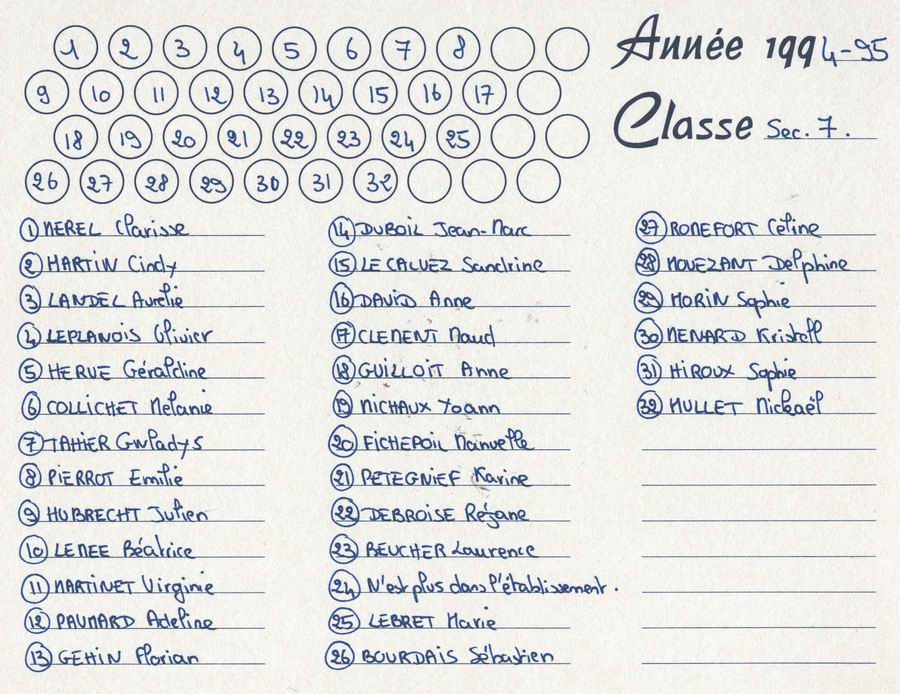 1 2 3 4 5 6 7 8
9 10 11 12 13 14 15 16 17
18 19 20 21 22 23 24 25
26 27 28 29 30 31 32
Année 1994-95
Classe Sec. 7.
1 MEREL Clarisse
2 MARTIN Cindy
3 LANDEL Aurélie
4 LEPLANOIS Olivier
5 HERVE Géraldine
6 COLLICHET Melanie
7 TAHIER Gwladys
8 PIERROT Emilie
9 HUBRECHT Julien
10 LEMEE Béatrice
11 MARTINET Virginie
12 PAUMARD Adeline
13 GEHIN Florian
14 DUBOIL Jean-Marc
15 LE CALVEZ Sandrine
16 DAVID Anne
17 CLEMENT Maud
18 GUILLOIT Anne
19 MICHAUX Yoann
20 FICHEPOIL Manuelle
21 PETEGNIEF Karine
22 DEBROISE Réjane
23 BEUCHER Laurence
24 N'est plus dans l'établissement.
25 LEBRET Marie
26 BOURDAIS Sébastien
27 ROMEFORT Céline
28 MOUEZANT Delphine
29 MORIN Sophie
30 MENARD Kristell
31 HIROUX Sophie
32 MULLET Mickaël